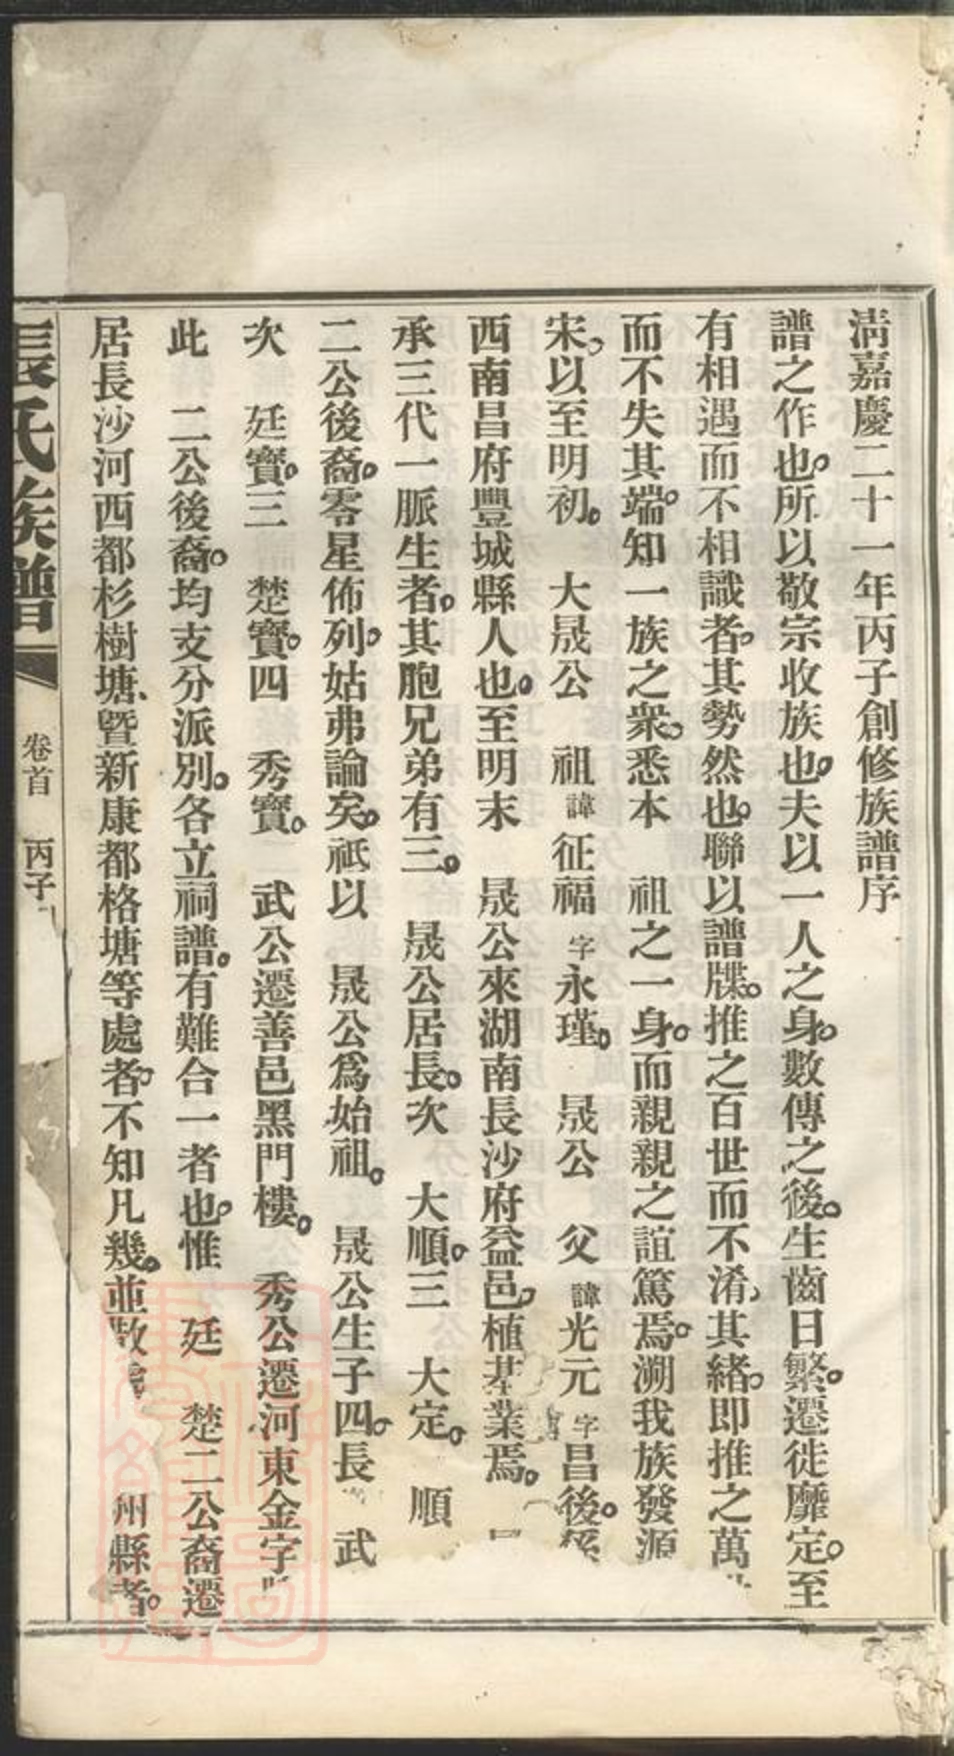 清嘉慶二十一年丙子創修族譜序
譜之作也。所以敬宗收族也。夫以一人之身。數傳之後。生齒日繁。遷徙靡定。至
有相遇而不相識者。其勢然也。聯以譜牒。推之百世而不淆。其緒。即推之萬
而不失其端。知一族之衆。悉本　祖之一身。而親親之誼篤焉。溯我族發源
宋。以至明初。　大晟公　祖諱征福　字永瑾。　晟公　父諱光元　字昌後。係
西南昌府豐城縣人也。至明末　晟公來湖南長沙府益邑。植基業焉。
承三代一脈生者。其胞兄弟有三。　晟公居長。次　大順。三　大定。　順
二公後裔。零星佈列。姑弗論矣。祇以　晟公爲始祖。　晟公生子四。長　武
次　廷寶。三　楚寶。四　秀寶。　武公遷善邑黑門樓。　秀公遷河東金字
此　二公後裔。均支分派別。各立祠譜。有難合一者也。惟　廷　楚二公裔遷
居長沙河西都杉樹塘、暨新康都格塘等處者。不知凡幾。並散　州縣者。
張氏族譜　卷首　丙子